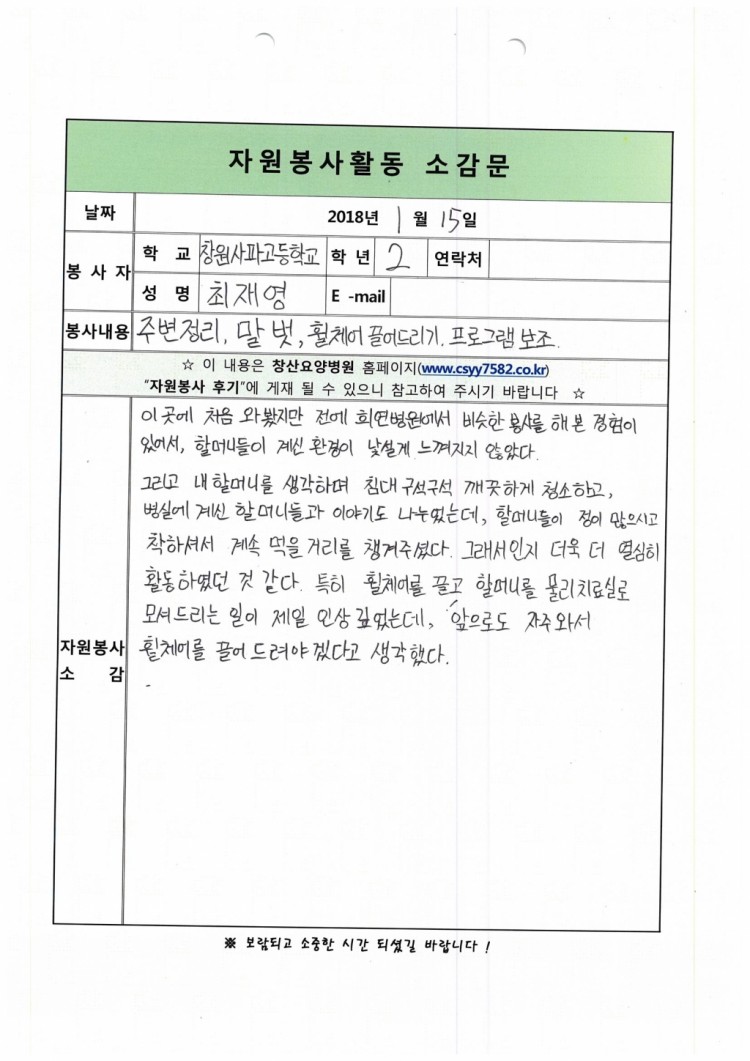 자원봉사활동 소감문
날짜 2018년 1월 15일
봉사자 학교 창원사파고등학교 학년 2 연락처
성명 최재영 E-mail
봉사내용 주변정리, 말벗, 휠체어 끌어드리기, 프로그램 보조.
☆ 이 내용은 창산요양병원 홈페이지(www.csyy7582.co.kr)
"자원봉사 후기"에 게재 될 수 있으니 참고하여 주시기 바랍니다 ☆
이 곳에 처음 와봤지만 전에 희연병원에서 비슷한 봉사를 해 본 경험이
있어서, 할머니들이 계신 환경이 낯설게 느껴지지 않았다.
그리고 내 할머니를 생각하며 침대 구석구석 깨끗하게 청소하고,
병실에 계신 할머니들과 이야기도 나누었는데, 할머니들이 정이 많으시고
착하셔서 계속 먹을거리를 챙겨주셨다. 그래서인지 더욱 더 열심히
활동하였던 것 같다. 특히 휠체어를 끌고 할머니를 물리치료실로
모셔드리는 일이 제일 인상 깊었는데, 앞으로도 자주 와서
휠체어를 끌어 드려야겠다고 생각했다.
자원봉사
소감
※ 보람되고 소중한 시간 되셨길 바랍니다 !